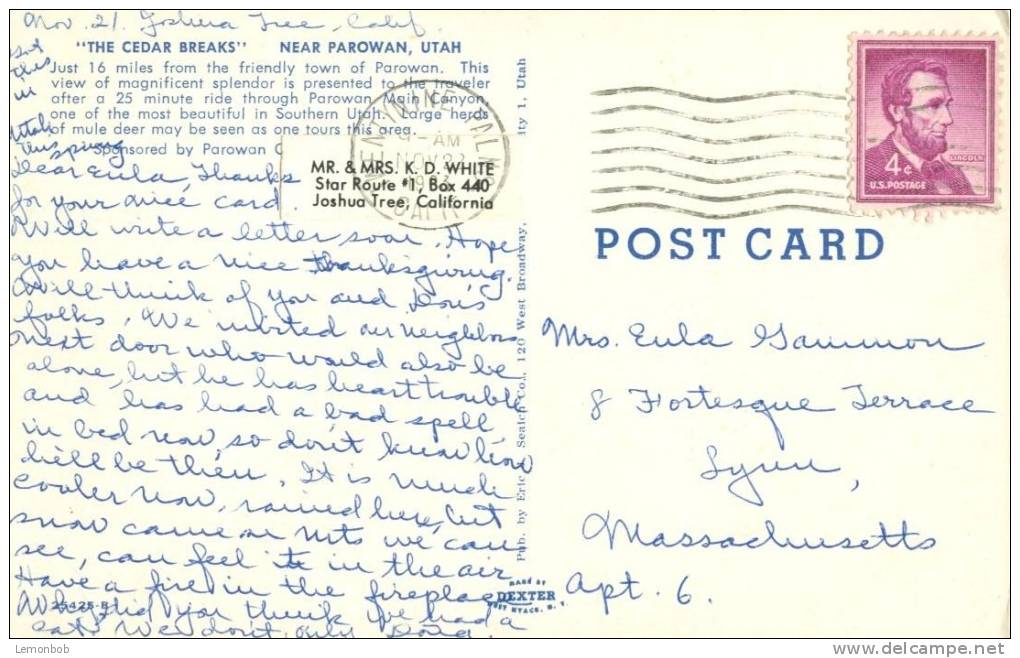 Nov. 21. Joshua Tree, Calif.
"THE CEDAR BREAKS" NEAR PAROWAN, UTAH
Just 16 miles from the friendly town of Parowan. This
view of magnificent splendor is presented to the traveler
after a 25 minute ride through Parowan Main Canyon,
one of the most beautiful in Southern Utah. Large herds
of mule deer may be seen as one tours this area.
Sponsored by Parowan C
this
in
Utah
this spring
Dear Eula, Thanks
for your nice card.
Will write a letter soon. Hope
you have a nice thanksgiving.
Will think of you and Doris
folks. We invited our neighbors
next door who would also be
alone, but he has heart trouble
and has had a bad spell
in bed now, so don't know how
he'll be then. It is much
cooler now, rained here, but
snow came on mts we can
see, can feel it in the air.
Have a fire in the fireplace.
Why did you think I've had a
cat. We don't, only
25425-B
MR. & MRS. K. D. WHITE
Star Route #1, Box 440
Joshua Tree, California
AM
NOV 22
Pub. by Eric Seaich Co., 120 West Broadway,
ity 1, Utah
MADE BY
DEXTER
WEST NYACK, N. Y.
4¢
LINCOLN
U.S. POSTAGE
POST CARD
Mrs. Eula Gammon
8 Fortesque Terrace
Lynn,
Massachusetts
Apt. 6.
Lemonbob
delcampe.net